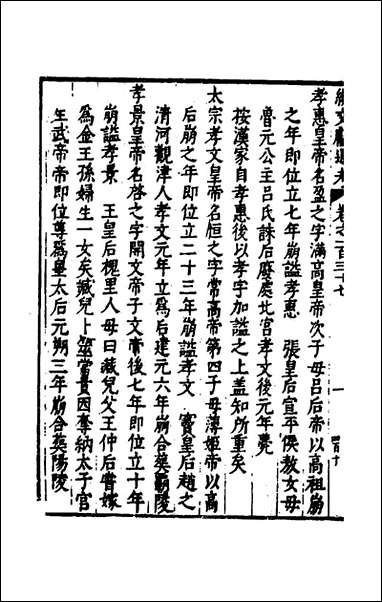 續文獻通考卷之一百三十七
孝惠皇帝名盈之字滿高皇帝次子母吕后帝以高祖崩
之年即位立七年崩謚孝惠 張皇后宣平侯敖女母
魯元公主吕氏誅后廢處北宫孝文後元年薨
按漢家自孝惠後以孝字加謚之上蓋知所重矣
太宗孝文皇帝名恒之字常高帝第四子母薄姬帝以高
后崩之年即位立二十三年崩謚孝文 竇皇后趙之
清河觀津人孝文元年立爲后建元六年崩合葬霸陵
孝景皇帝名啓之字開文帝子文帝後七年即位立十年
崩謚孝景 王皇后槐里人母曰臧兒父王仲后嘗嫁
爲金王孫婦生一女矣臧兒卜筮當貴因奪納太子宫
年武帝帝即位尊爲皇太后元朔三年崩合葬陽陵